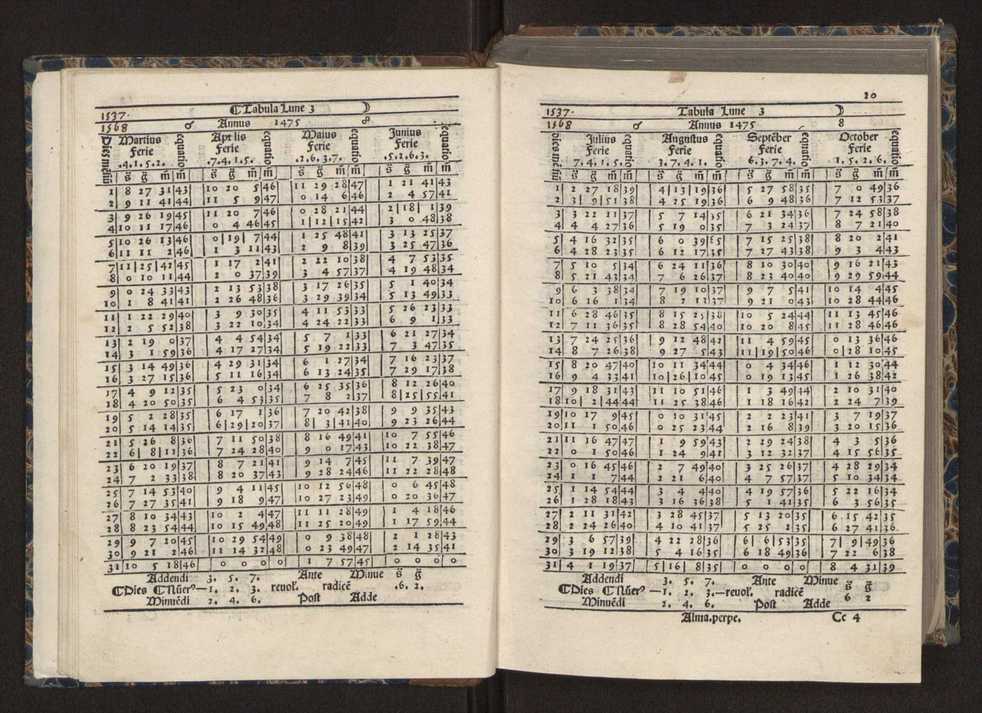 ☾Tabula Lune 3 ☽
1537.
1568 ♂ Annus 1475 8
Dies mēsiū Martius equatio Aprlis equatio Maius equatio Junius equatio
Ferie Ferie Ferie Ferie
.4.1.5.2. .7.4.1.5. .2.6.3.7. .5.2.6.3.
s̄ ḡ m̄ m̄ s̄ ḡ m̄ m̄ s̄ ḡ m̄ m̄ s̄ ḡ m̄ m̄
1 8 27 31 43 10 20 5 46 11 29 28 47 1 21 41 43
2 9 11 41 44 11 5 9 47 0 14 6 46 2 4 57 41
3 9 26 19 45 11 20 7 46 0 28 21 44 2 18 1 39
4 10 11 17 46 0 4 46 45 1 12 15 42 3 0 48 38
5 10 26 13 46 0 19 7 44 1 25 48 41 3 13 25 37
6 11 11 2 46 1 3 11 43 2 9 8 39 3 25 47 36
7 11 25 41 45 1 17 2 41 2 22 10 38 4 7 53 35
8 0 10 11 44 2 0 37 39 3 4 57 37 4 19 48 34
9 0 24 33 43 2 13 53 38 3 17 26 35 5 1 40 34
10 1 8 41 41 2 26 48 36 3 29 39 34 5 13 49 33
11 1 22 29 40 3 9 30 35 4 11 53 33 5 26 23 33
12 2 5 52 38 3 22 10 34 4 24 22 33 6 9 1 33
13 2 19 0 37 4 4 54 34 5 7 1 33 6 21 27 34
14 3 1 59 36 4 17 27 34 5 19 22 33 7 3 47 35
15 3 14 49 36 4 29 31 34 6 1 27 34 7 16 23 37
16 3 27 15 36 5 11 16 34 6 13 24 35 7 29 17 38
17 4 9 12 35 5 23 0 34 6 25 35 36 8 12 26 40
18 4 20 50 35 6 4 53 35 7 8 2 37 8 25 55 41
19 5 2 28 35 6 17 1 36 7 20 42 38 9 9 35 43
20 5 14 14 35 6 29 20 37 8 3 41 40 9 23 26 44
21 5 26 8 36 7 11 50 38 8 16 49 41 10 7 55 46
22 6 8 11 36 7 24 28 40 9 0 17 43 10 22 38 47
23 6 20 19 37 8 7 21 41 9 14 7 45 11 7 39 47
24 7 2 33 38 8 20 37 43 9 28 24 46 11 22 28 48
25 7 14 53 40 9 4 11 45 10 12 56 48 0 6 45 48
26 7 27 35 41 9 18 9 47 10 27 23 49 0 20 36 47
27 8 10 34 43 10 2 4 47 11 11 28 49 1 4 18 46
28 8 23 54 44 10 15 49 48 11 25 20 49 1 17 59 44
29 9 7 20 45 10 29 54 49 0 9 38 48 2 1 28 43
30 9 21 2 46 11 14 32 48 0 23 49 47 2 14 35 41
31 10 5 18 46 0 0 0 0 1 7 57 45 0 0 0 0
Addendi 3. 5. 7. Ante Minue s̄ ḡ
☾Dies ☾Nūerꝰ—1. 2. 3. reuol. radicē .6. 2.
Minuēdi 2. 4. 6. Post Adde
20
1537. Tabula Lune 3 ☽
1568 ♂ Annus 1475 8
dies mēsiū Julius equatio Augustus equatio Septēber equatio October equatio
Ferie Ferie Ferie Ferie
7. 4. 1. 5. 3. 7. 4. 1. 6. 3. 7. 4. 1. 5. 2. 6.
s̄ ḡ m̄ m̄ s̄ ḡ m̄ m̄ s̄ ḡ m̄ m̄ s̄ ḡ m̄ m̄
1 2 27 18 39 4 13 19 36 5 27 58 35 7 0 49 36
2 3 9 51 38 4 25 19 36 6 9 48 36 7 12 53 37
3 3 22 11 37 5 7 14 35 6 21 34 36 7 24 58 38
4 4 4 27 36 5 19 0 35 7 3 24 37 8 7 21 40
5 4 16 32 35 6 0 39 35 7 15 25 38 8 20 2 41
6 4 28 23 35 6 12 17 35 7 27 43 38 9 3 4 43
7 5 10 5 34 6 24 11 36 8 10 30 40 9 16 21 43
8 5 21 43 34 7 6 26 37 8 23 40 40 9 29 59 44
9 6 3 38 34 7 19 10 37 9 7 5 41 10 14 4 45
10 6 16 1 34 8 2 11 37 9 21 0 43 10 28 44 46
11 6 28 46 35 8 15 25 38 10 5 24 44 11 13 45 46
12 7 11 36 35 8 28 54 40 10 20 8 45 11 28 46 46
13 7 24 25 36 9 12 48 41 11 4 59 45 0 13 36 46
14 8 7 26 38 9 27 5 43 11 19 50 46 0 28 10 45
15 8 20 47 40 10 11 34 44 0 4 34 46 1 12 30 44
16 9 4 33 41 10 26 10 45 0 19 13 45 1 26 38 42
17 9 18 31 43 11 10 51 46 1 3 49 44 2 10 31 40
18 10 2 44 44 11 25 38 46 1 18 16 42 2 24 7 39
19 10 17 9 45 0 10 31 45 2 2 23 41 3 7 19 37
20 11 1 50 46 0 25 23 44 2 16 8 39 3 20 15 36
21 11 16 47 47 1 9 59 43 2 29 24 38 4 3 5 36
22 0 1 50 46 1 24 9 41 3 12 32 37 4 15 56 35
23 0 16 45 46 2 7 49 40 3 25 26 37 4 28 29 34
24 1 1 7 44 2 21 6 40 4 7 57 37 5 10 34 34
25 1 14 54 44 3 4 4 40 4 19 57 36 5 22 16 34
26 1 28 18 43 3 16 26 38 5 1 41 35 6 3 56 35
27 2 11 31 42 3 28 45 37 5 13 20 35 6 15 42 35
28 2 24 26 40 4 10 41 37 5 25 2 35 6 27 41 36
29 3 6 57 39 4 22 28 36 6 6 53 35 7 9 49 36
30 3 19 12 38 5 4 16 35 6 18 49 36 7 22 6 38
31 4 1 19 37 5 16 8 35 0 0 0 0 8 4 31 39
Addendi 3. 5. 7. Ante Minue s̄ ḡ
☾Dies ☾Nūerꝰ —1. 2. 3.—reuol. radicē 6 2
Minuēdi 2. 4. 6. Post Adde
Alma.perpe. Cc 4